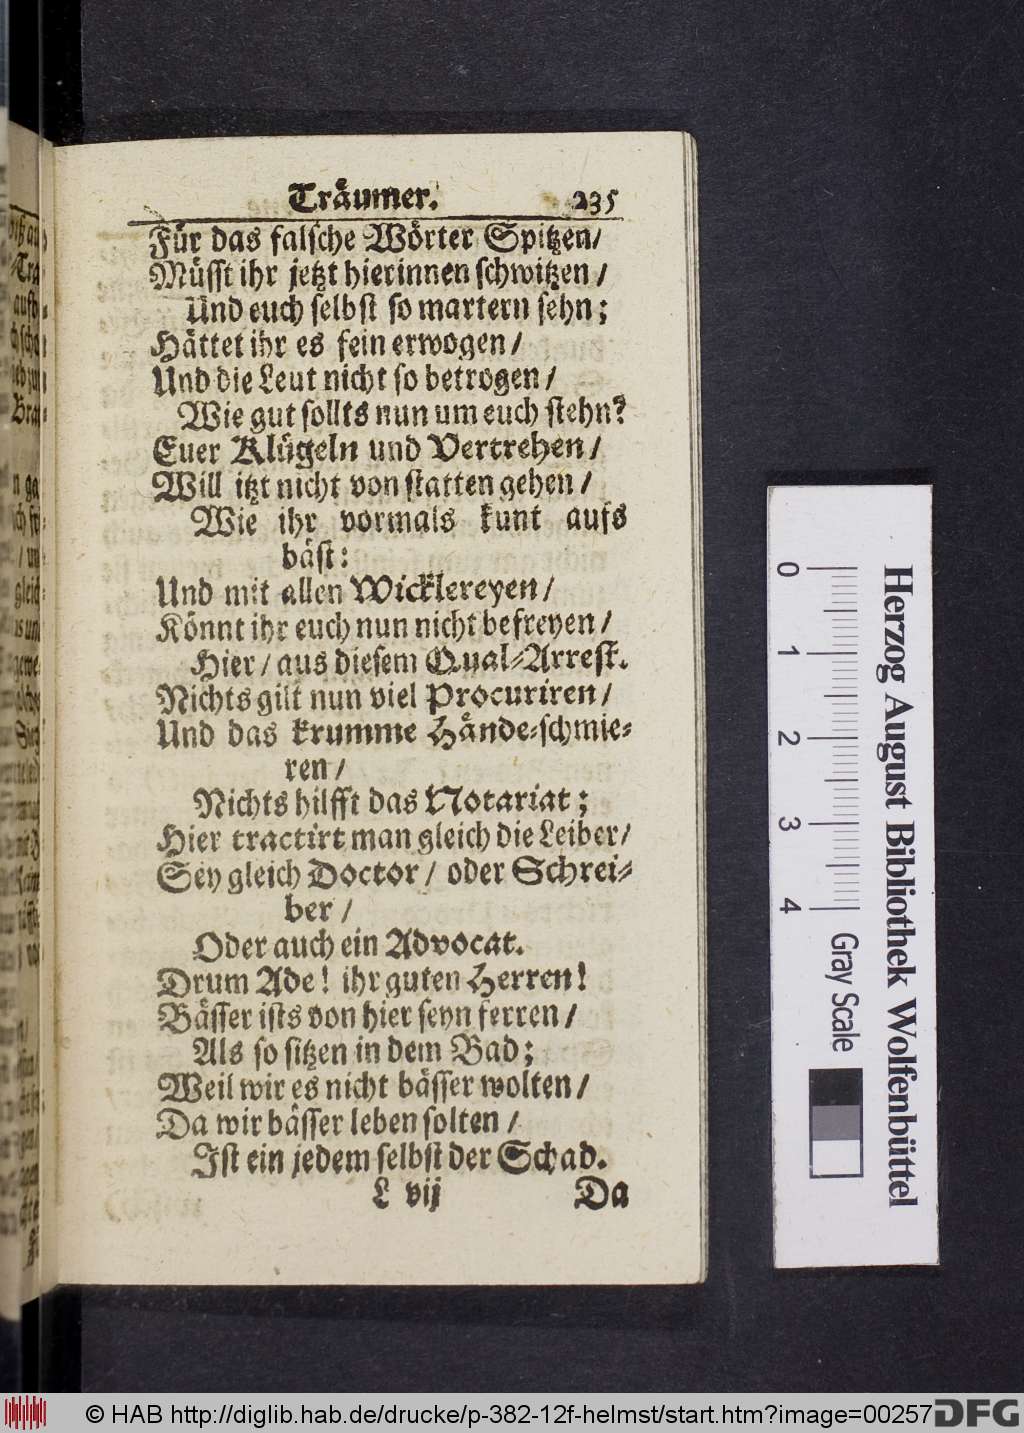 Träumer. 235
Für das falsche Wörter Spitzen/
Müsst ihr jetzt hierinnen schwitzen /
Und euch selbst so martern sehn;
Hättet ihr es fein erwogen /
Und die Leut nicht so betrogen /
Wie gut sollts nun um euch stehn?
Euer Klügeln und Vertrehen /
Will itzt nicht von statten gehen /
Wie ihr vormals kunt aufs
bäst:
Und mit allen Wicklereyen /
Könnt ihr euch nun nicht befreyen /
Hier / aus diesem Qual-Arrest.
Nichts gilt nun viel Procuriren /
Und das krumme Hände-schmie-
ren /
Nichts hilfft das Notariat;
Hier tractirt man gleich die Leiber/
Sey gleich Doctor / oder Schrei-
ber /
Oder auch ein Advocat.
Drum Ade! ihr guten Herren!
Bässer ists von hier seyn ferren /
Als so sitzen in dem Bad;
Weil wir es nicht bässer wolten /
Da wir bässer leben solten /
Ist ein jedem selbst der Schad.
L vij Da
0 1 2 3 4
Gray Scale
Herzog August Bibliothek Wolfenbüttel
© HAB http://diglib.hab.de/drucke/p-382-12f-helmst/start.htm?image=00257
DFG